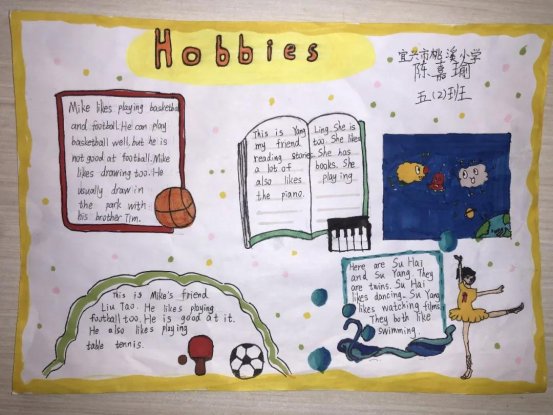 Hobbies
宜兴市桃溪小学
陈嘉瑜
五(2)班
Mike likes playing basketball
and football. He can play
basketball well. but he is
not good at football. Mike
likes drawing too. He
usually draw in
the park with
his brother Tim.
This is Yang
my friend
reading stories.
a lot of
also likes
the piano.
Ling. She is
too. She likes
She has
books. She
playing
Here are Su Hai
and Su Yang. They
are twins. Su Hai
likes dancing. Su Yang
likes watching films.
They both like
swimming.
This is Mike's friend
Liu Tao. He likes playing
football too. He is good at it.
He also likes playing
table tennis.